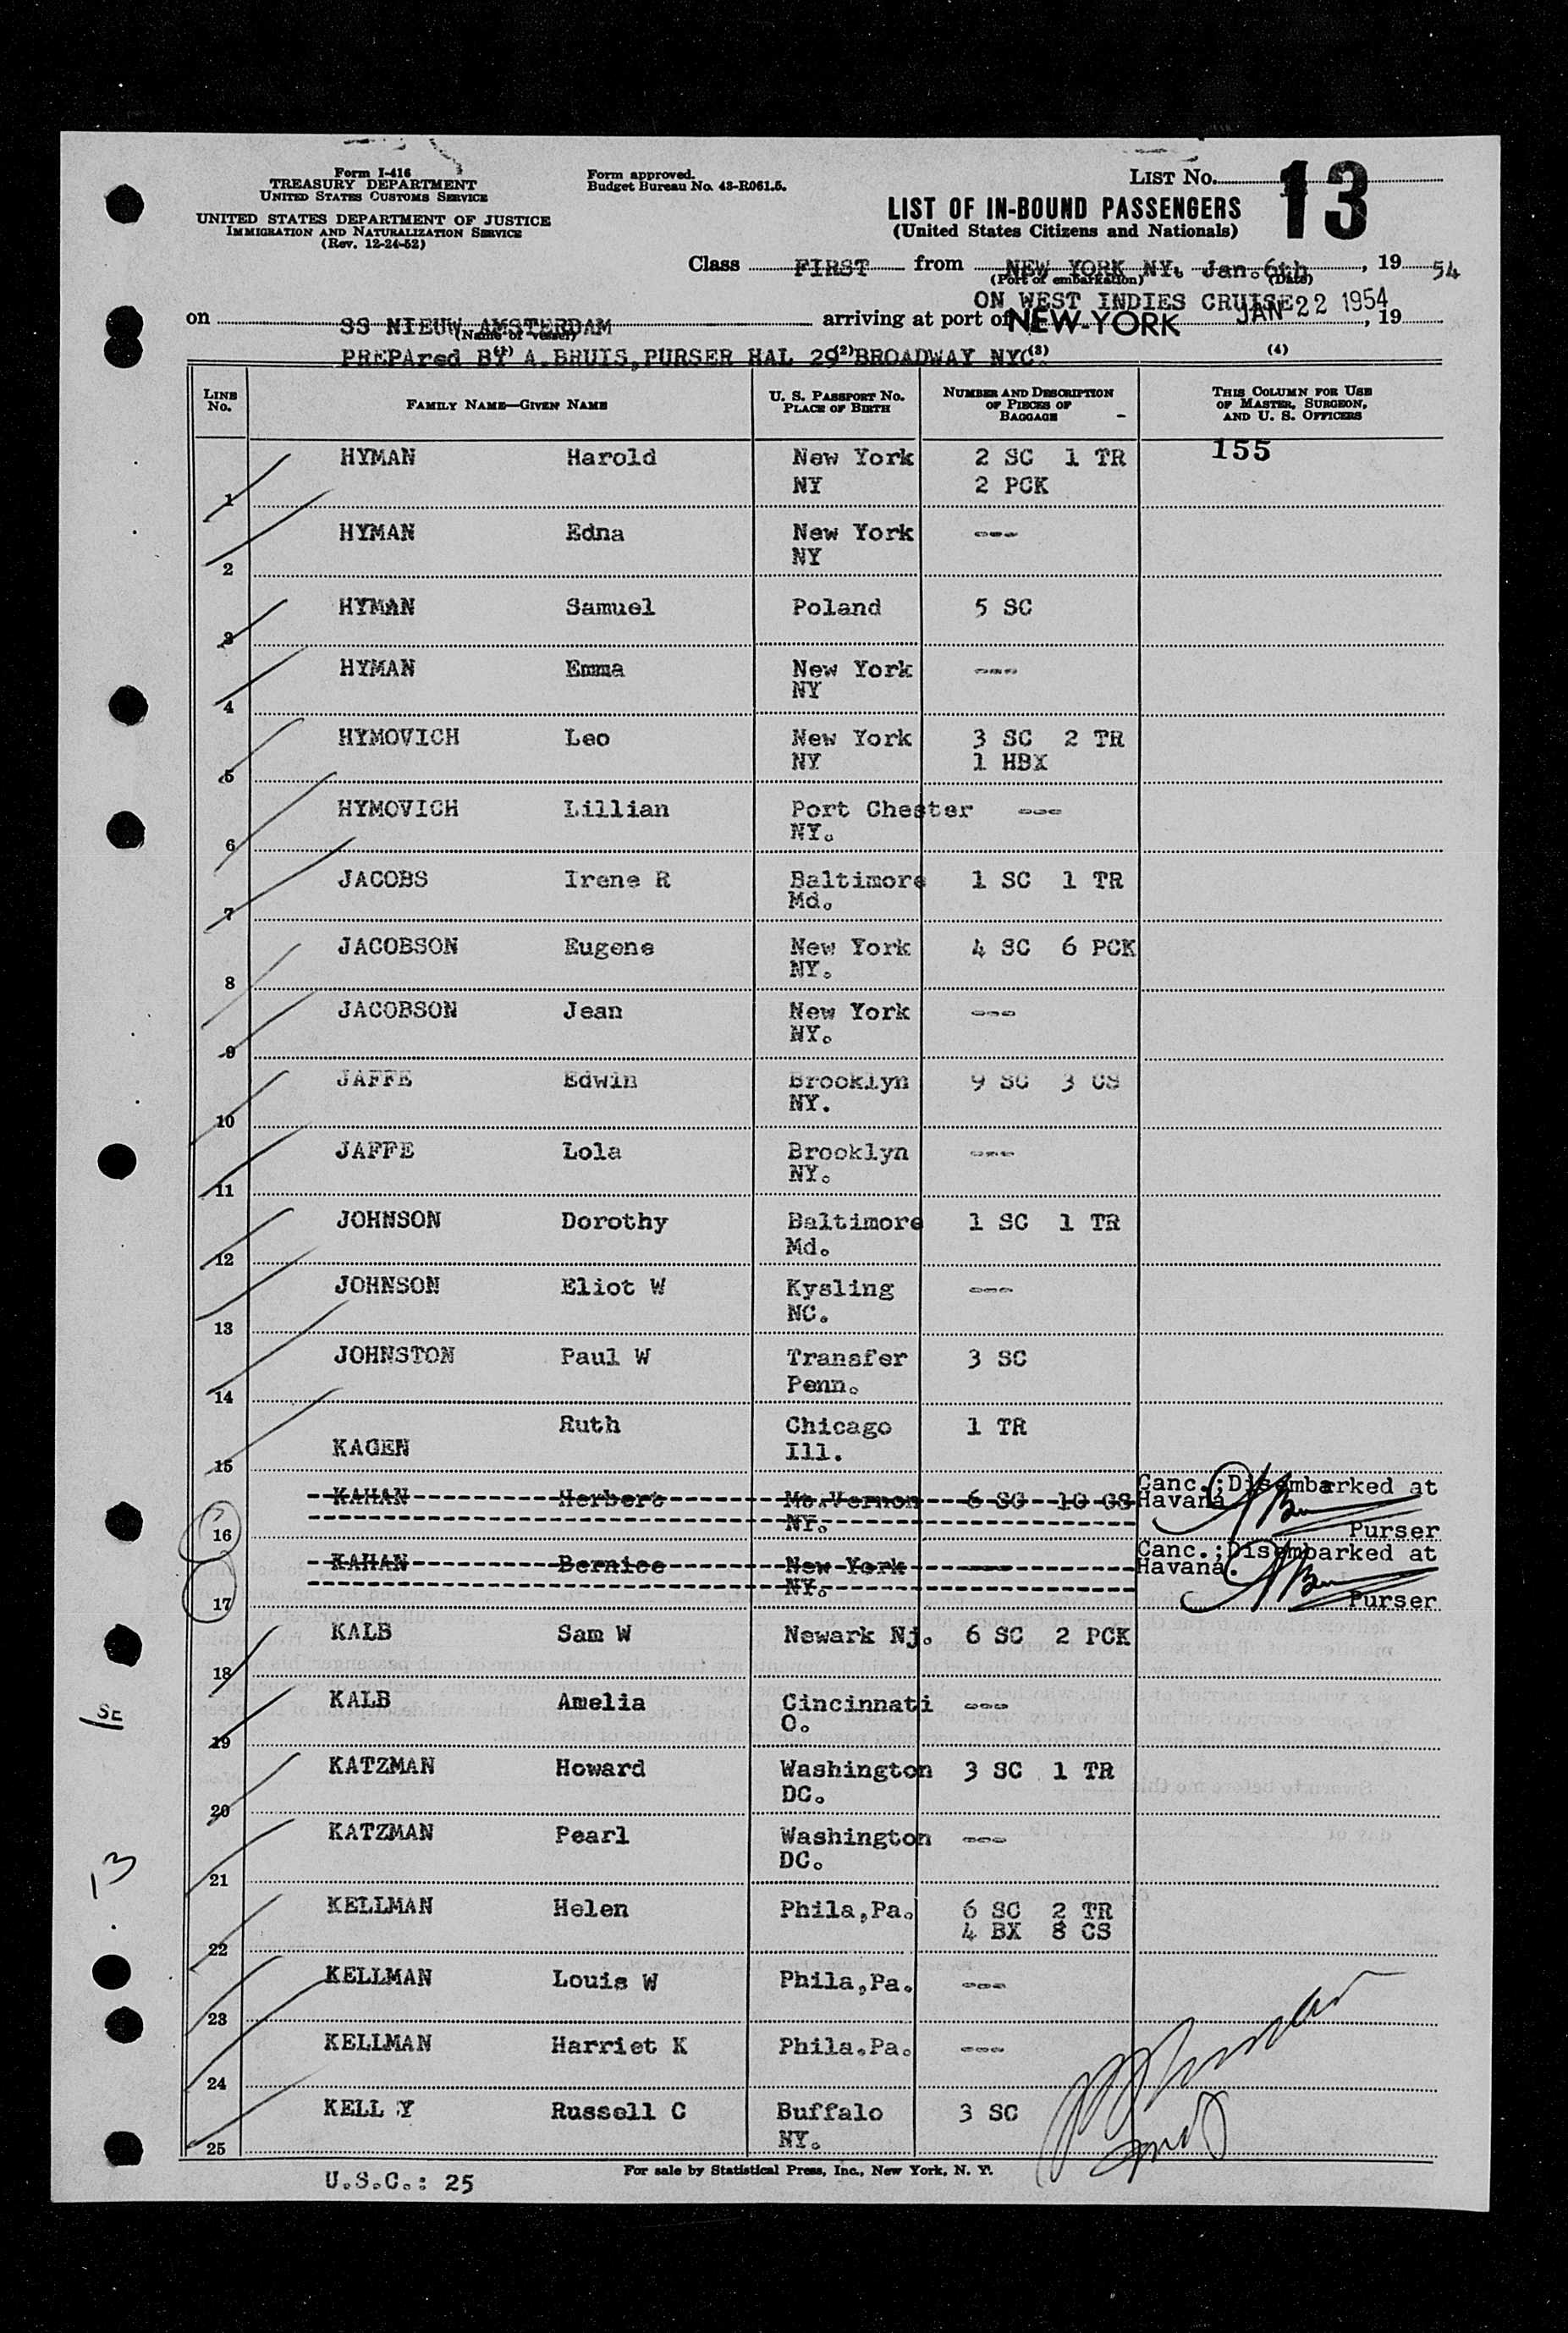 Form I-416
TREASURY DEPARTMENT
UNITED STATES CUSTOMS SERVICE
UNITED STATES DEPARTMENT OF JUSTICE
IMMIGRATION AND NATURALIZATION SERVICE
(Rev. 12-24-52)
Form approved.
Budget Bureau No. 43-R061.5.
LIST No. 13
LIST OF IN-BOUND PASSENGERS
(United States Citizens and Nationals)
Class FIRST from NEW YORK NY. Jan.6th, 1954
(Port of embarkation) (Date)
ON WEST INDIES CRUISE
on SS NIEUW AMSTERDAM arriving at port of NEW YORK JAN 22 1954, 19
(Name of vessel)
PREPAred BY A.BRUIS,PURSER HAL 29 BROADWAY NYC.
(1) (2) (3) (4)
LINE No. FAMILY NAME—GIVEN NAME U. S. PASSPORT No. PLACE OF BIRTH NUMBER AND DESCRIPTION OF PIECES OF BAGGAGE THIS COLUMN FOR USE OF MASTER, SURGEON, AND U. S. OFFICERS
155
HYMAN Harold New York 2 SC 1 TR
1 NY 2 PCK
HYMAN Edna New York ---
2 NY
HYMAN Samuel Poland 5 SC
3
HYMAN Emma New York ---
4 NY
HYMOVICH Leo New York 3 SC 2 TR
5 NY 1 HBX
HYMOVICH Lillian Port Chester ---
6 NY.
JACOBS Irene R Baltimore 1 SC 1 TR
7 Md.
JACOBSON Eugene New York 4 SC 6 PCK
8 NY.
JACOBSON Jean New York ---
9 NY.
JAFFE Edwin Brooklyn 9 SC 3 CS
10 NY.
JAFFE Lola Brooklyn ---
11 NY.
JOHNSON Dorothy Baltimore 1 SC 1 TR
12 Md.
JOHNSON Eliot W Kysling ---
13 NC.
JOHNSTON Paul W Transfer 3 SC
14 Penn.
Ruth Chicago 1 TR
15 KAGEN Ill.
KAHAN Herbert Mt.Vernon 6 SC 10 CS Canc.;Disembarked at
Havana
16 NY. Purser
KAHAN Bernice New York --- Canc.;Disembarked at
Havana.
17 NY. Purser
KALB Sam W Newark Nj. 6 SC 2 PCK
18
KALB Amelia Cincinnati ---
19 O.
KATZMAN Howard Washington 3 SC 1 TR
20 DC.
KATZMAN Pearl Washington ---
21 DC.
KELLMAN Helen Phila,Pa. 6 SC 2 TR
22 4 BX 8 CS
KELLMAN Louis W Phila,Pa. ---
23
KELLMAN Harriet K Phila.Pa. ---
24
KELL Y Russell C Buffalo 3 SC
25 NY.
For sale by Statistical Press, Inc., New York, N. Y.
U.S.C.: 25
SE
13